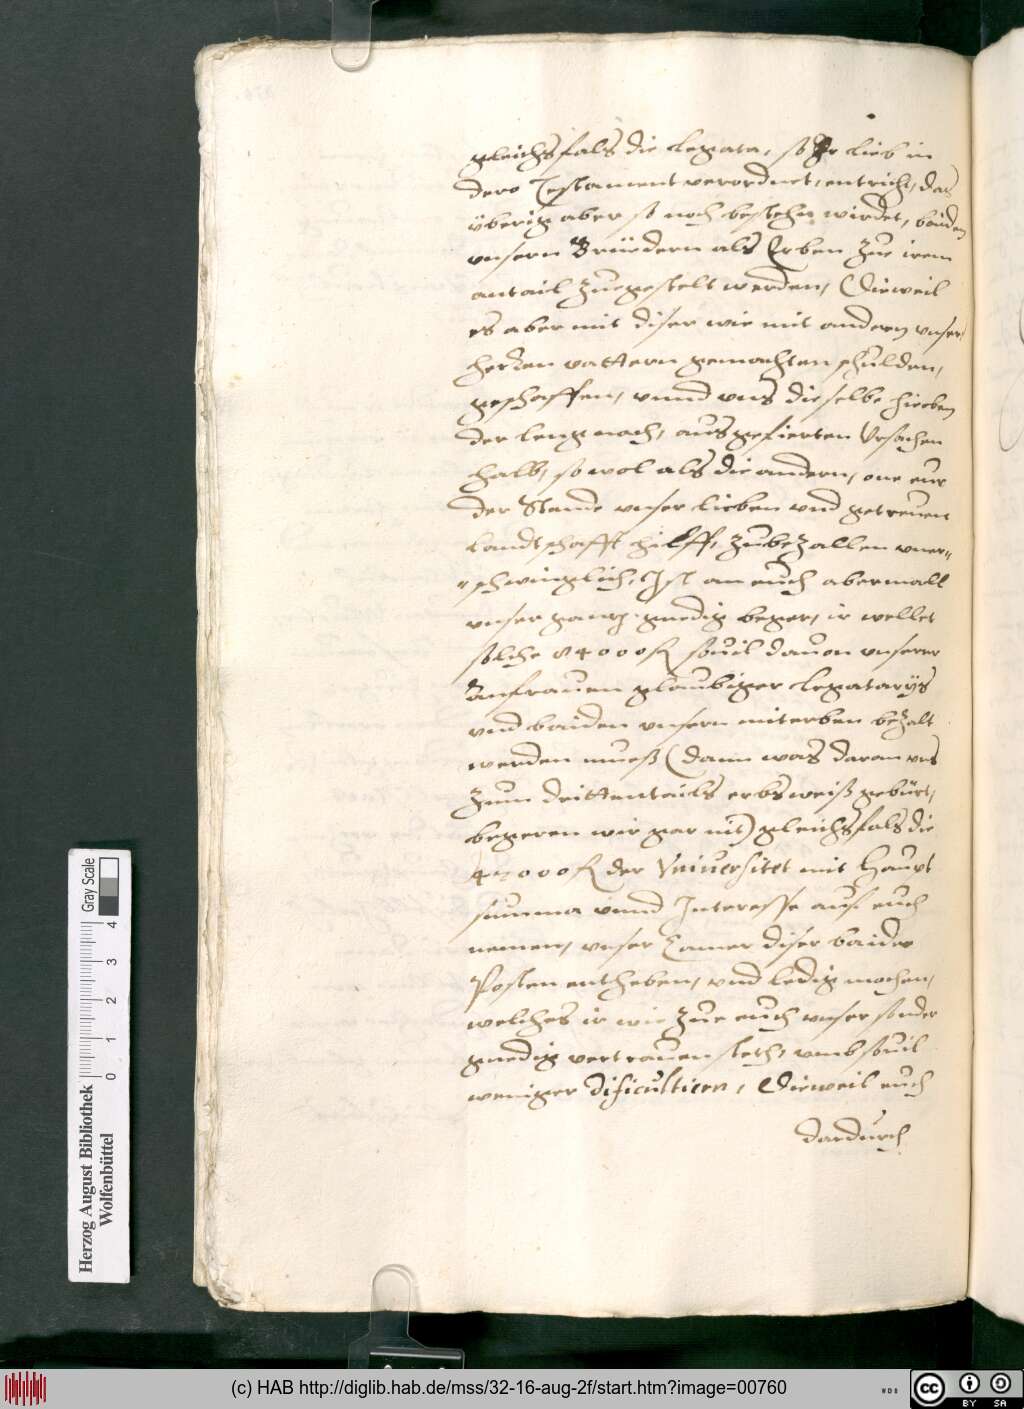 gleichsfals die Legata, so Ir Lieb in
dero Testament verordnet, entricht, das
yberig aber so noch bestehn wirdet, baiden
unsern Brüedern als Erben zue irem
antail zuegestelt werden, Dieweil
es aber mit diser wie mit andern unser
herren vattern gemachten schulden,
geschaffen, unnd uns dieselbe hieoben
der leng nach, ausgefierten Ursachen
halb, sowol als die andern, one eur
der Stande unser lieben und getreuen
Landtschafft hilff, zubezallen uner-
schwinglich, Ist an euch abermall
unser ganz gnedig beger, ir wellet
solche 84000 fl souil dauon unserer
Anfrauen glaubiger Legatarÿs
und baiden unsern miterben bezalt
werden mueß (dann was daran uns
zum drittentails erbsweiß gebürt,
begeren wir gar nit) gleichsfals die
42000 fl der Uniuersitet mit Haupt
summa unnd Interesse auf euch
nemen, unser Camer diser baider
Posten entheben, und ledig machen,
welches ir wie zue euch unser sonder
gnedig vertrauen steth, umb souil
weniger dificultiern, Dieweil euch
dardurch
Herzog August Bibliothek
Wolfenbüttel
0 1 2 3 4
Gray Scale
(c) HAB http://diglib.hab.de/mss/32-16-aug-2f/start.htm?image=00760
WDB
cc BY SA